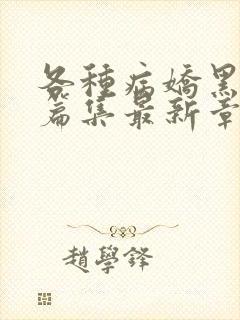 各種病嬌黑
篇集最新章
趙學鋒